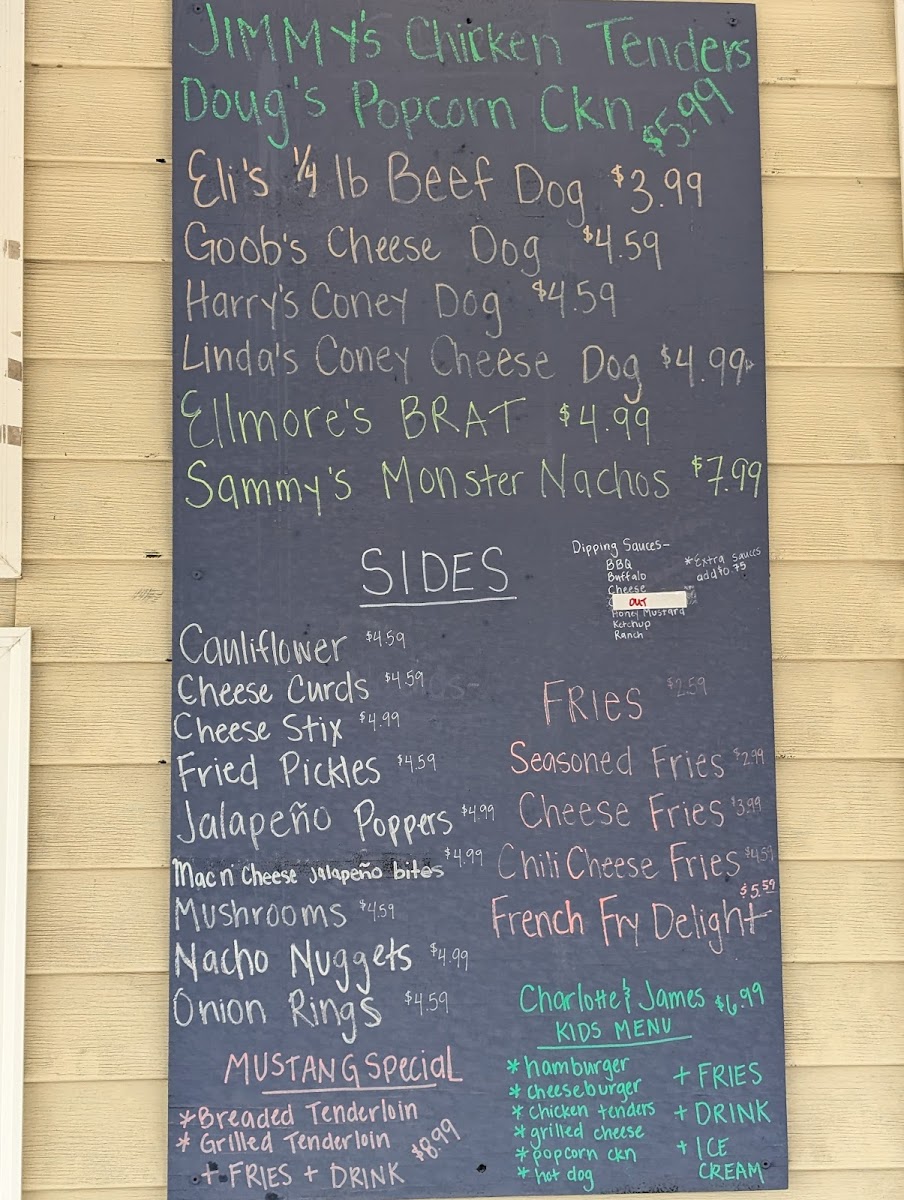 JIMMY'S Chicken Tenders
Doug's Popcorn Ckn $5.99
Eli's 1/4 lb Beef Dog $3.99
Goob's Cheese Dog $4.59
Harry's Coney Dog $4.59
Linda's Coney Cheese Dog $4.99
Ellmore's BRAT $4.99
Sammy's Monster Nachos $7.99
Dipping Sauces-
BBQ
Buffalo
Cheese
OUT
Honey Mustard
Ketchup
Ranch
*Extra Sauces
add $0.75
SIDES
Cauliflower $4.59
Cheese Curds $4.59
Cheese Stix $4.99
Fried Pickles $4.59
Jalapeño Poppers $4.99
Mac n' Cheese jalapeño bites $4.99
Mushrooms $4.59
Nacho Nuggets $4.99
Onion Rings $4.59
FRIES $2.59
Seasoned Fries $2.99
Cheese Fries $3.99
Chili Cheese Fries $4.59
French Fry Delight $5.59
MUSTANG Special
*Breaded Tenderloin
*Grilled Tenderloin
+ FRIES + DRINK $8.99
Charlotte & James $6.99
KIDS MENU
*hamburger
*cheeseburger
*chicken tenders
*grilled cheese
*popcorn ckn
*hot dog
+ FRIES
+ DRINK
+ ICE
CREAM